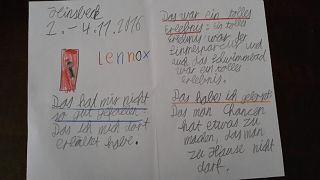 Heinsberg
2.-4.11.2016
Lennox
Das hat mir nicht
so gut gefallen
Das ich mich dort
erkältet habe.
Das war ein tolles
Erlebnis: Ein tolles
Erlebnis war der
und
auch das Schwimmbad
war ein tolles
Erlebnis.
Das habe ich gelernt:
Das man Chancen
hat etwas zu
machen, das man
zu Hause nicht
darf.